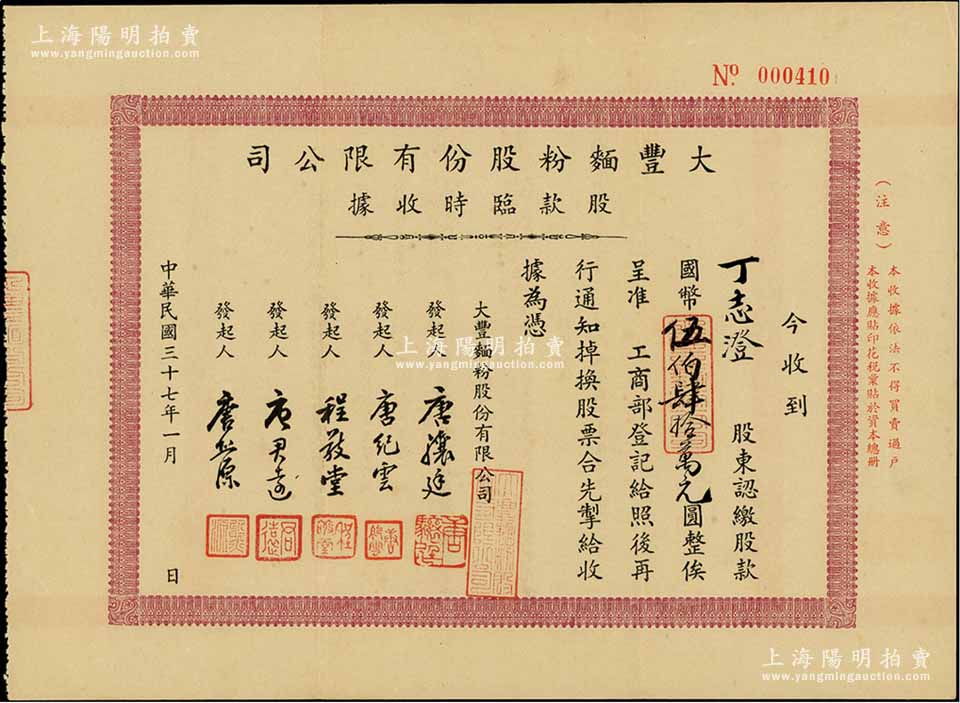 上海陽明拍賣
www.yangmingauction.com
Nº 000410
大豐麵粉股份有限公司
股款臨時收據
今收到
丁志澄 股東認繳股款
國幣伍佰肆拾萬元圓整俟
呈准 工商部登記給照後再
行通知掉換股票合先掣給收
據為憑
大豐麵粉股份有限公司
發起人 唐驤廷
發起人 唐紀雲
發起人 程敬堂
發起人 唐君遠
發起人 唐熊源
中華民國三十七年一月 日
(注意) 本收據依法不得買賣過戶
本收據應貼印花稅彙貼於資本總冊
上海陽明拍賣
www.yangmingauction.com
上海陽明拍賣
www.yangmingauction.com